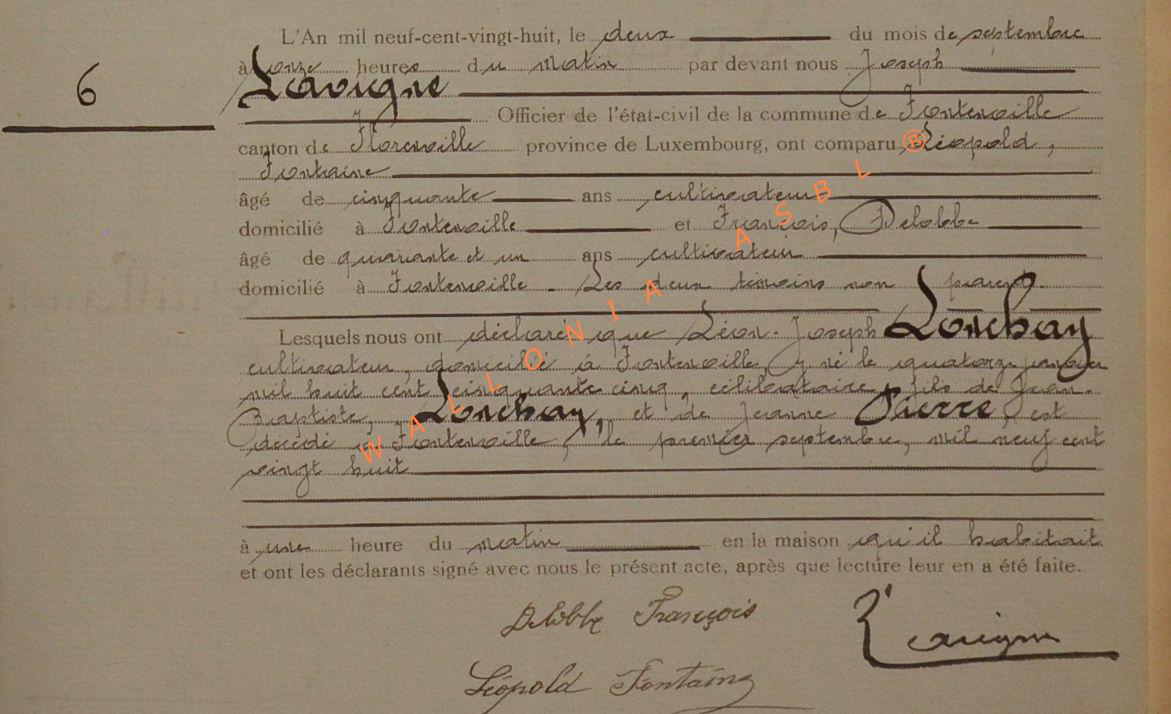 L'An mil neuf-cent-vingt-huit, le deux du mois de septembre
à onze heures du matin par devant nous Joseph
Lavigne
6
Officier de l'état-civil de la commune de Fontenoille
canton de Florenville province de Luxembourg, ont comparu, Léopold,
Fontaine
âgé de cinquante ans cultivateur
domicilié à Fontenoille et François, Delobbe
âgé de quarante et un ans cultivateur
domicilié à Fontenoille. Les deux témoins non parents.
Lesquels nous ont déclaré que Léon-Joseph Lonchay
cultivateur, domicilié à Fontenoille, y né le quatorze
mil huit cent cinquante cinq, célibataire, fils de Jean-
Baptiste, Lonchay, et de Jeanne Pierre, est
décédé à Fontenoille, le premier septembre, mil neuf cent
vingt huit
à une heure du matin en la maison qu'il habitait
et ont les déclarants signé avec nous le présent acte, après que lecture leur en a été faite.
Delobbe François
Lavigne
Léopold Fontaine
WALLONIA ASBL ®